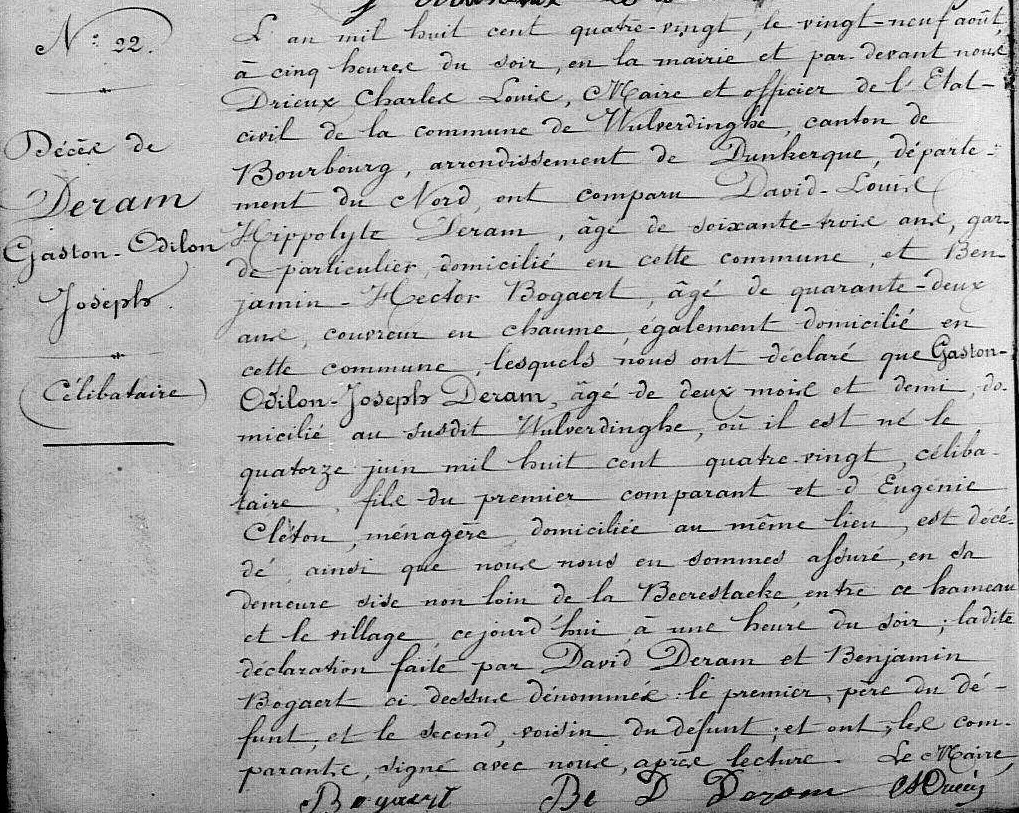 N.º 22.
Décès de
Deram
Gaston-Odilon
Joseph.
(Célibataire)
L'an mil huit cent quatre-vingt, le vingt-neuf août,
à cinq heures du soir, en la mairie et par-devant nous
Drieux Charles Louis, Maire et officier de l'Etat-
civil de la commune de Wulverdinghe, canton de
Bourbourg, arrondissement de Dunkerque, départe-
ment du Nord, ont comparu David-Louis
Hippolyte Deram, âgé de soixante-trois ans, gar-
de particulier, domicilié en cette commune, et Ben-
jamin-Hector Bogaert, âgé de quarante-deux
ans, couvreur en chaume, également domicilié en
cette commune, lesquels nous ont déclaré que Gaston-
Odilon-Joseph Deram, âgé de deux mois et demi, do-
micilié au susdit Wulverdinghe, où il est né le
quatorze juin mil huit cent quatre-vingt, céliba-
taire, fils du premier comparant et d'Eugénie
Cléton, ménagère, domiciliée au même lieu, est décé-
dé, ainsi que nous nous en sommes assuré, en sa
demeure sise non loin de la Beerestacke, entre ce hameau
et le village, cejourd'hui, à une heure du soir; ladite
déclaration faite par David Deram et Benjamin
Bogaert ci-dessus dénommés: le premier, père du dé-
funt, et le second, voisin du défunt; et ont, les com-
parants, signé avec nous, après lecture. Le Maire,
Bogaert Be D Deram